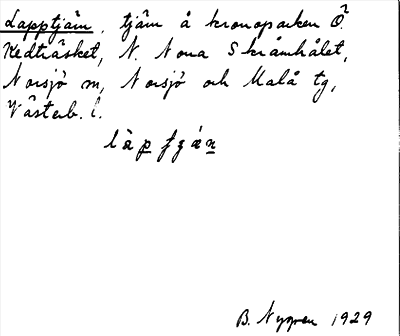 Lapptjärn, tjärn å kronoparken Ö.
Kedträsket, N. Norra Skråmhålet,
Norsjö sn, Norsjö och Malå tg,
Västerb. l.
B. Nygren 1929